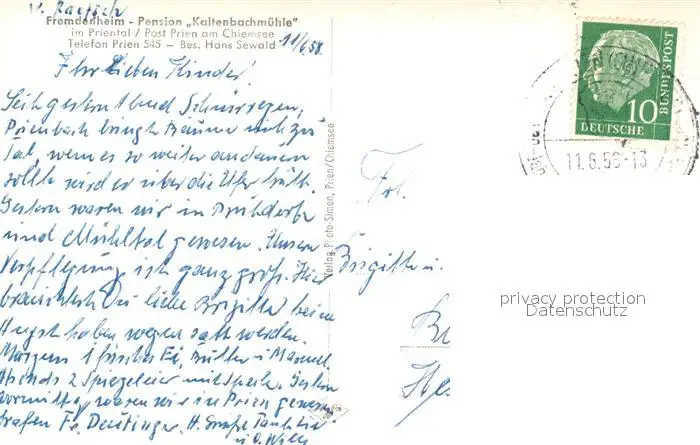 Fremdenheim - Pension „Kaltenbachmühle"
im Priental / Post Prien am Chiemsee
Telefon Prien 545 — Bes. Hans Sewald
11/6.58.
Ihr Lieben Kinder!
Seit gestern Abend Schnürregen,
Prienbach bringt Bäume mit zu
Tal, wenn es so weiter andauern
sollte wird er über die Ufer
Gestern waren wir in
und Mühltal gewesen. Unsere
Verpflegung ist ganz groß. Hier
brauchtest Du liebe Brigitte keine
Angst haben wegen satt werden.
Morgens 1 frisches Ei, Butter u Marmel.
Abends 2 Spiegeleier mit Speck. Gestern
vormittag waren wir in Prien gewesen
trafen Fr. Deutinger. H. Grüße Tante
u O. Willy
Verlag Photo-Simon, Prien/Chiemsee
Frl.
Brigitte u.
10
DEUTSCHE
BUNDESPOST
11.6.58-13
privacy protection
Datenschutz